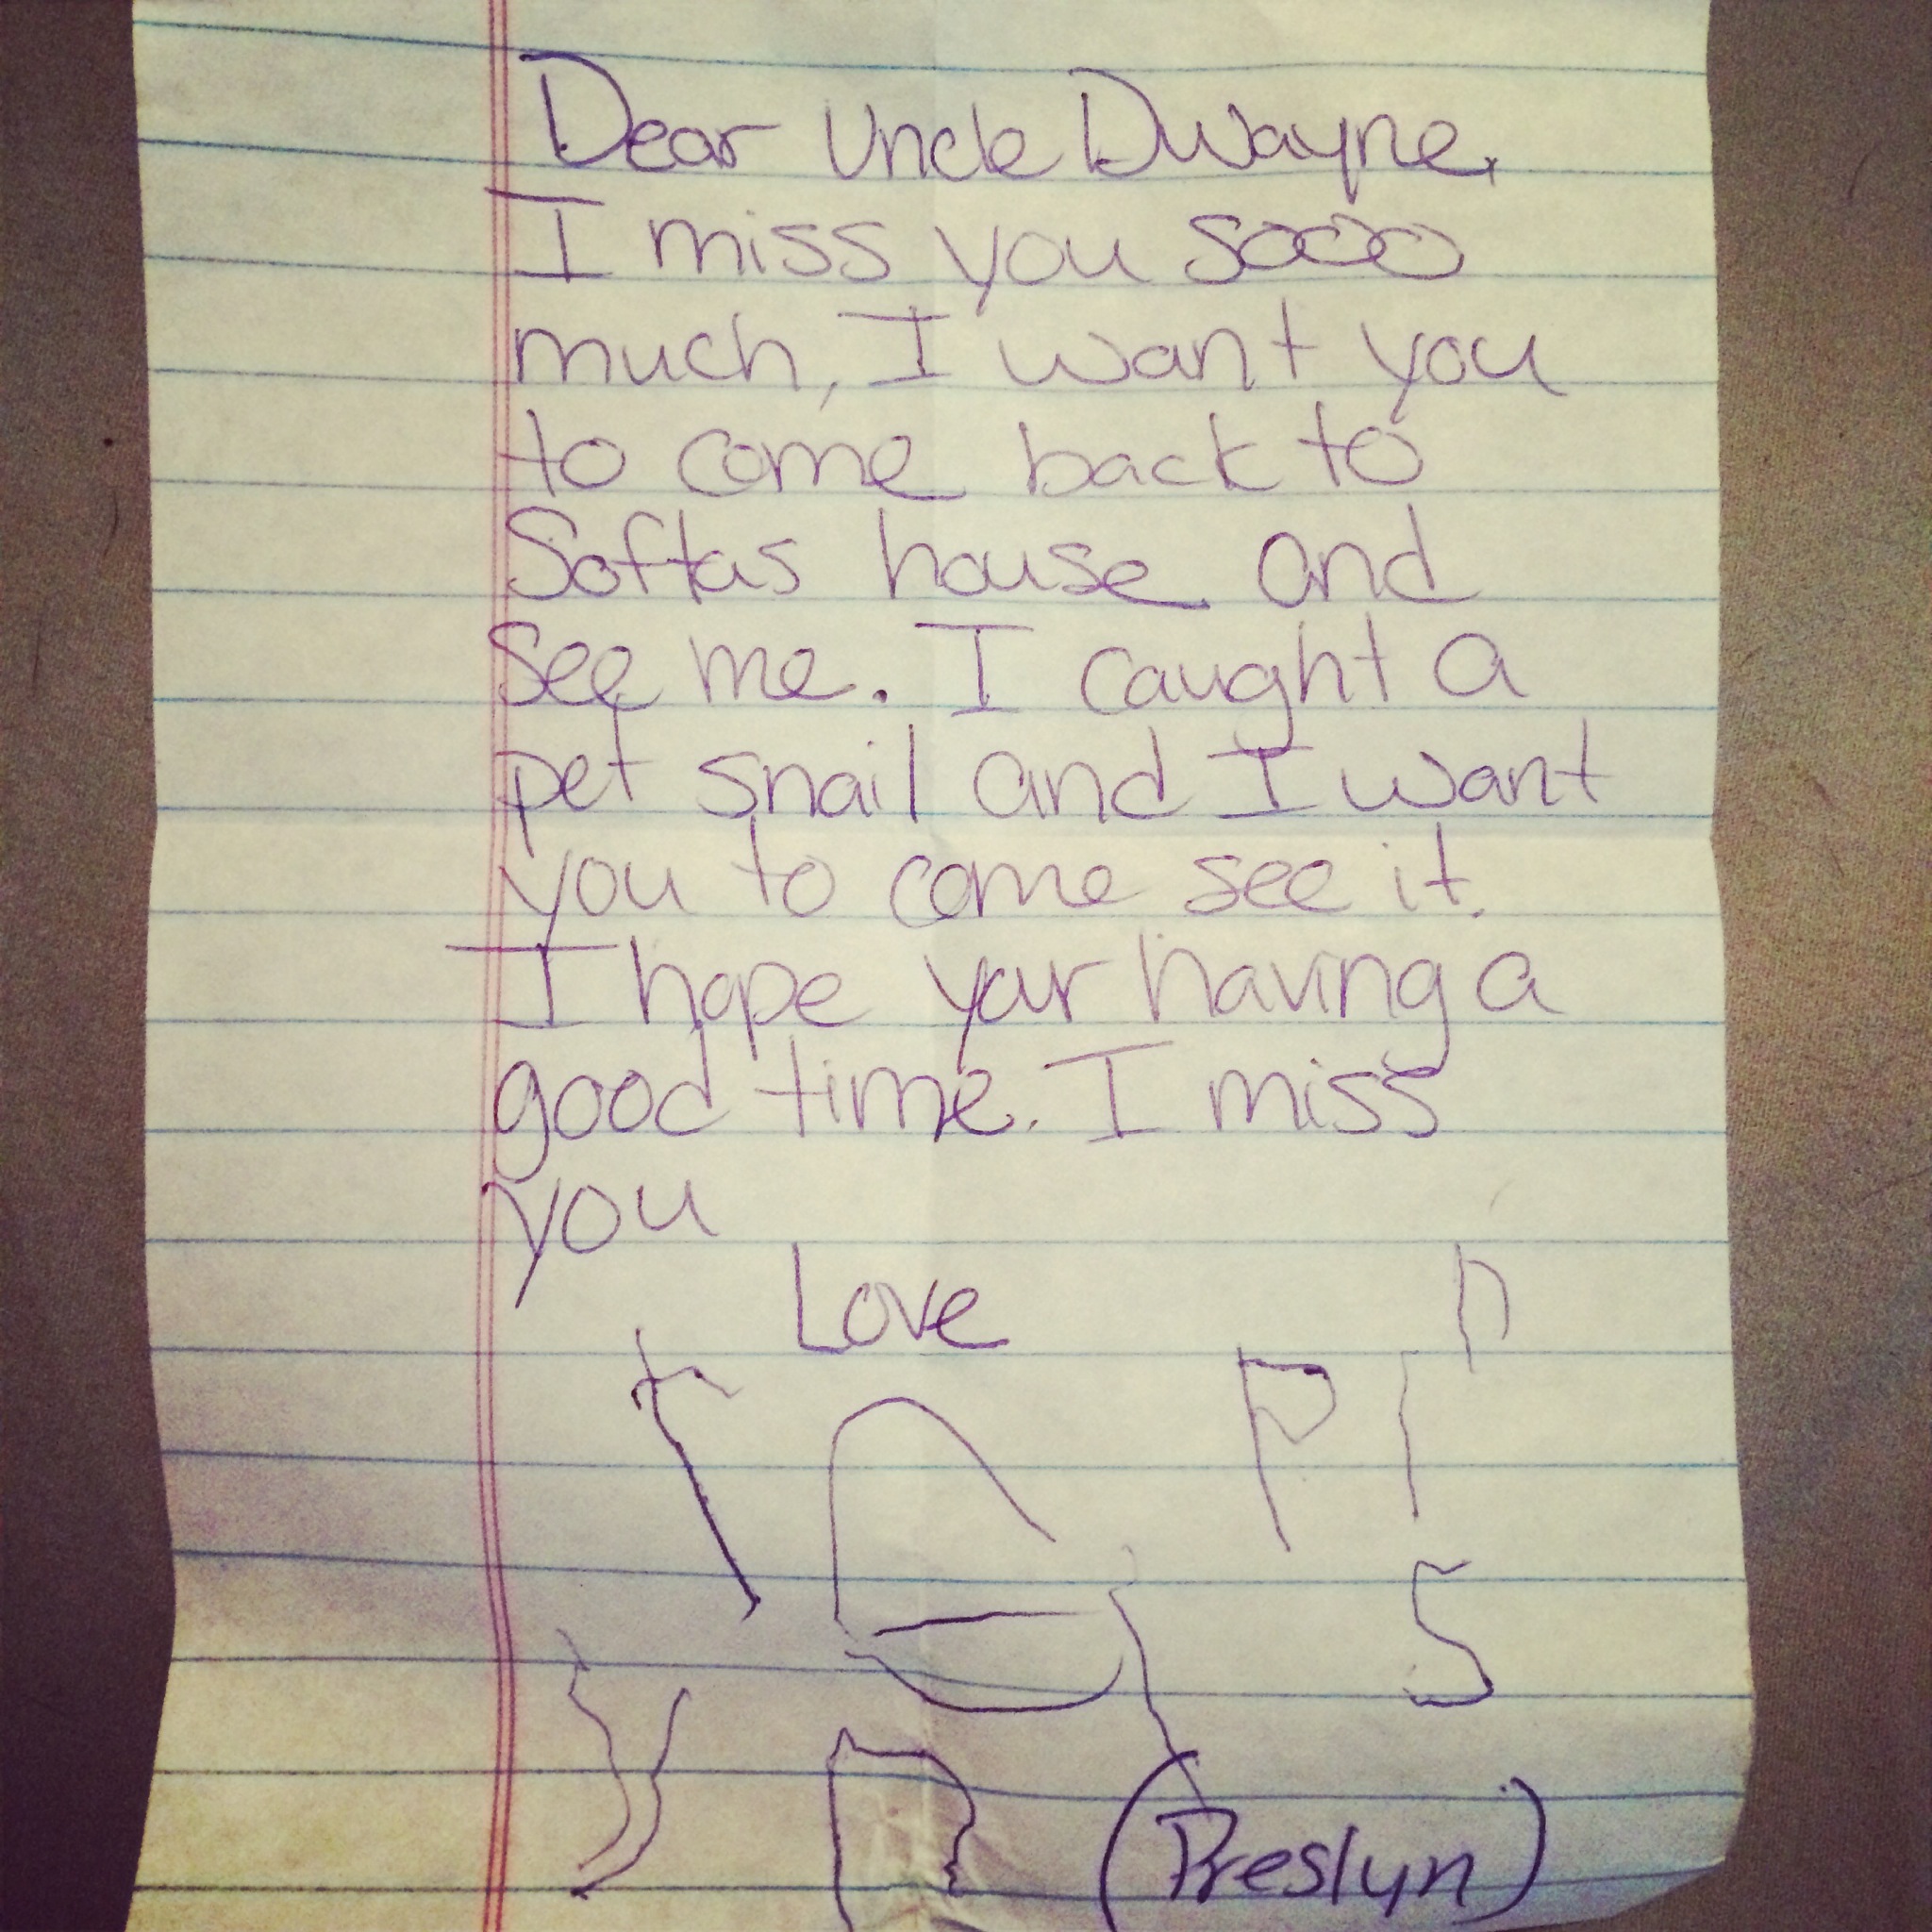 Dear Uncle Dwayne,
I miss you sooo
much, I want you
to come back to
Softas house and
see me. I caught a
pet snail and I want
you to come see it.
I hope your having a
good time. I miss
you
Love
n
r P l
e s
y n (Preslyn)